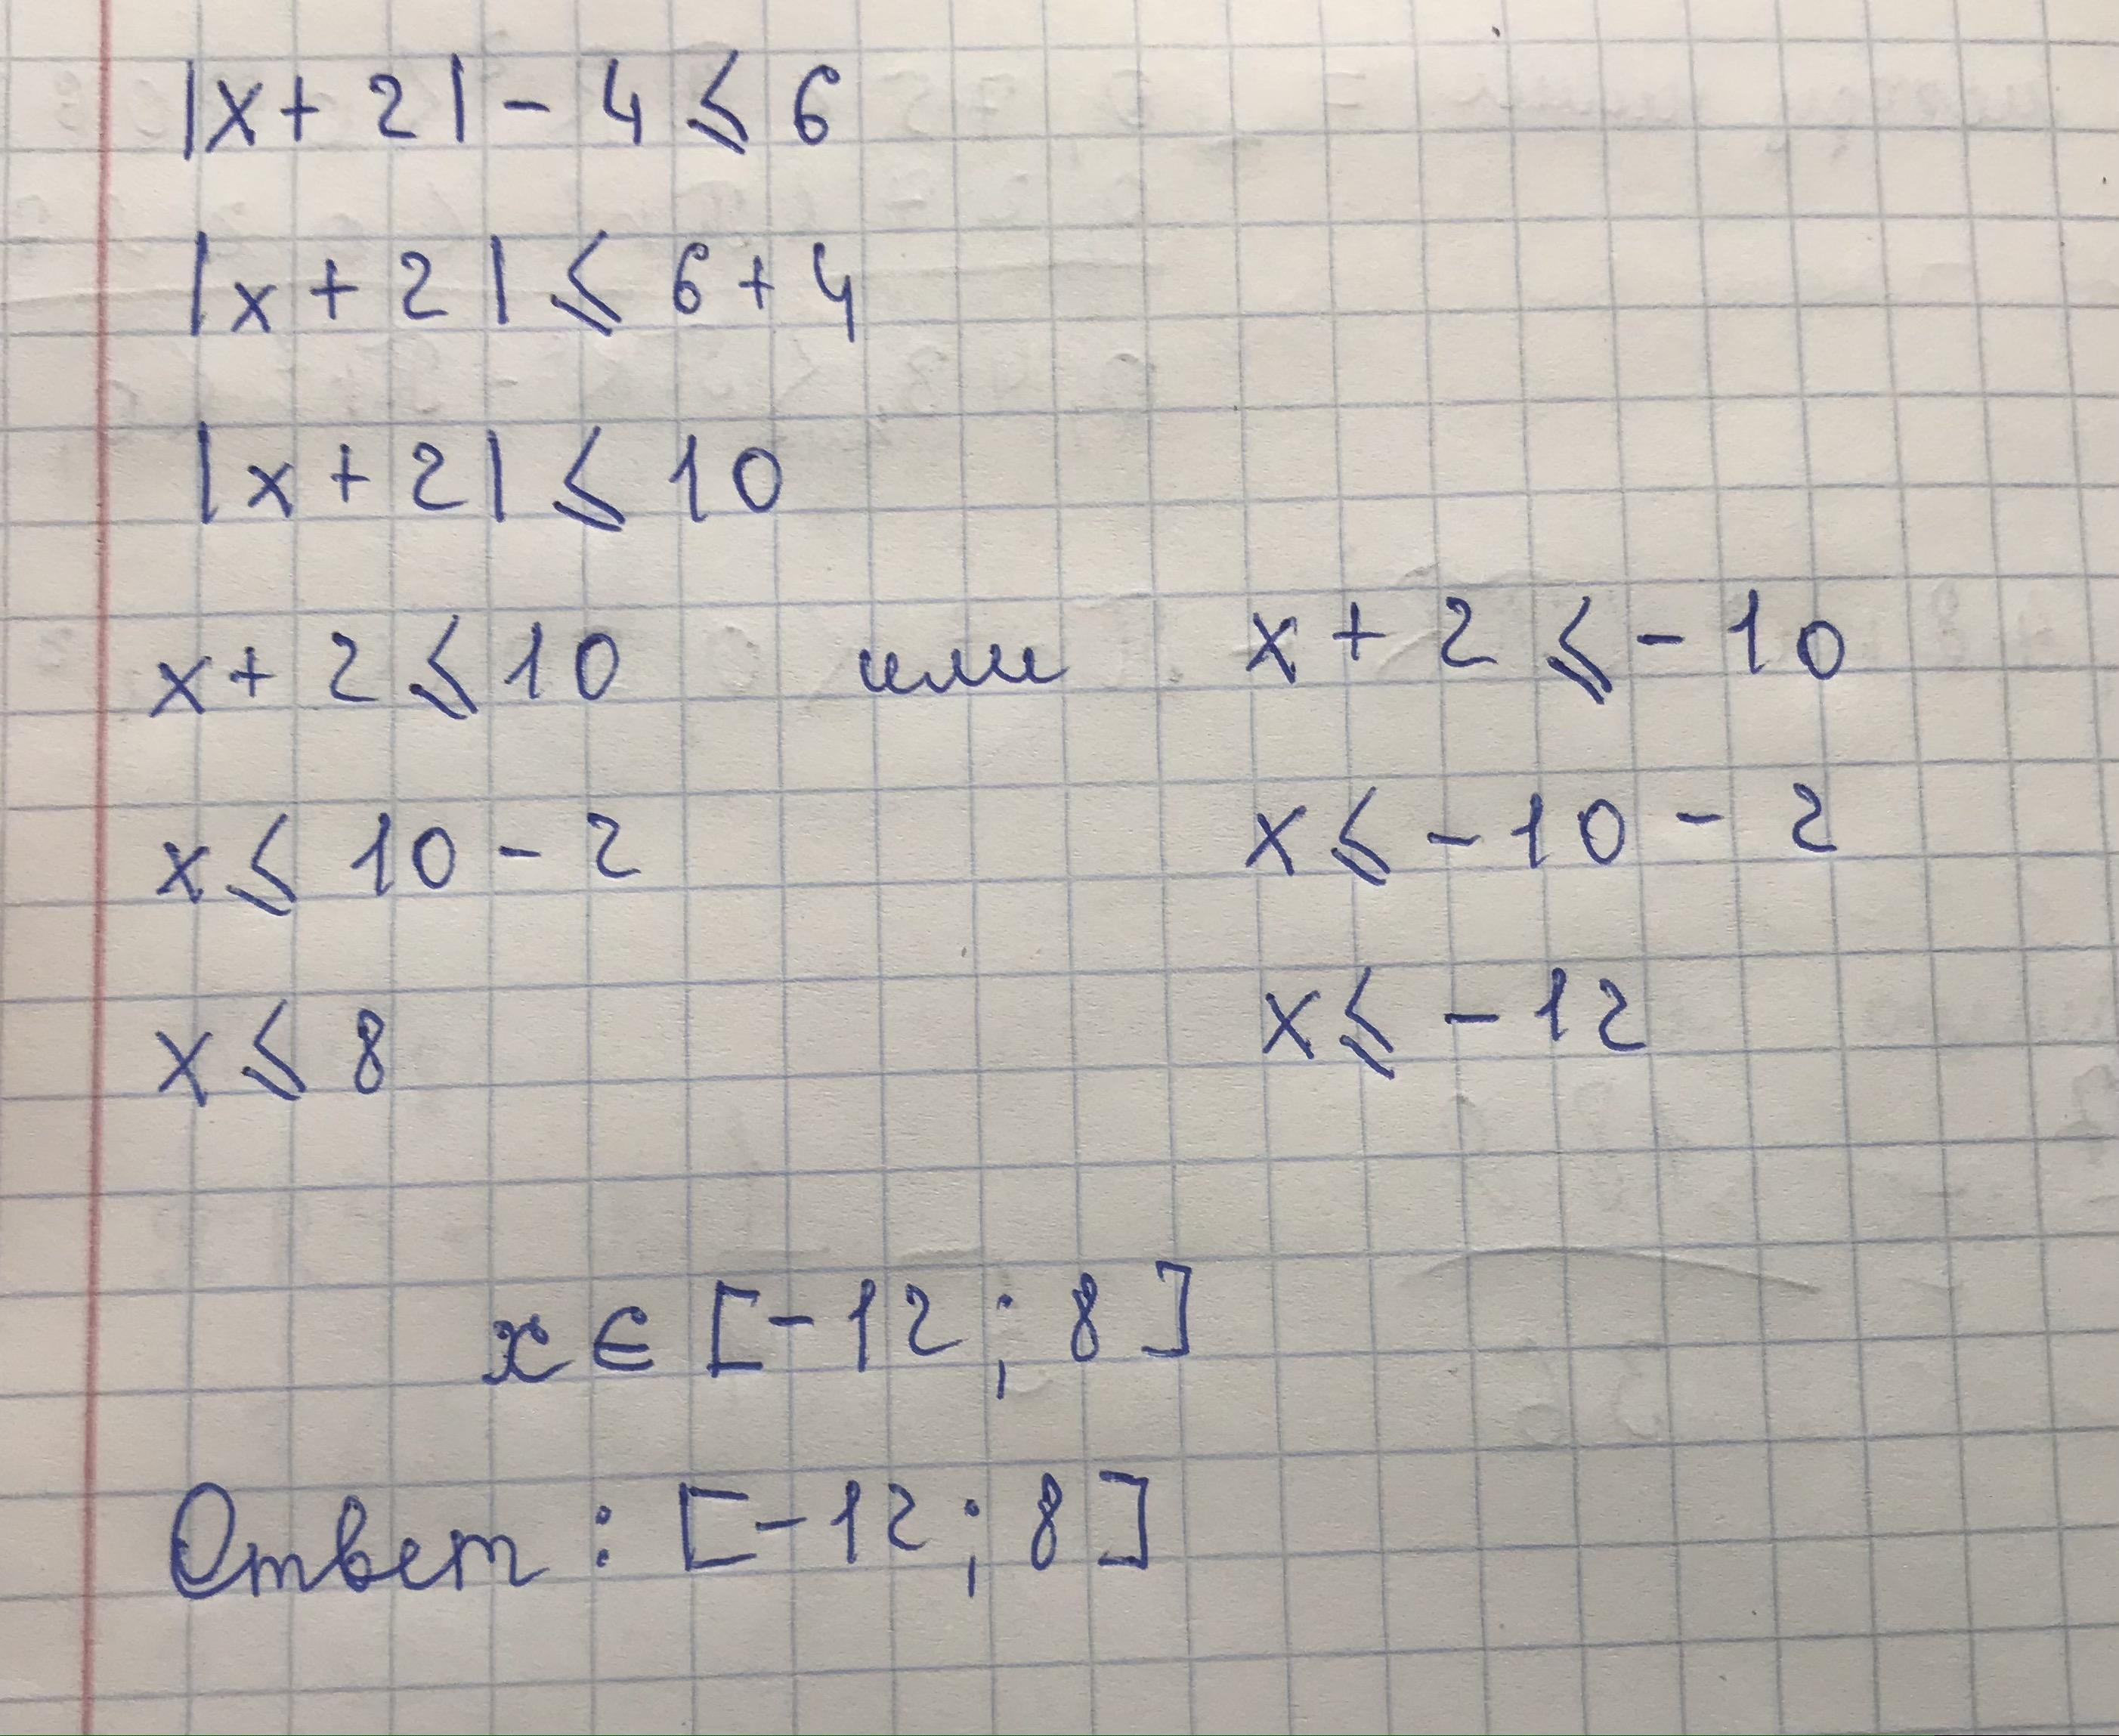 |x + 2| - 4 ⩽ 6
|x + 2| ⩽ 6 + 4
|x + 2| ⩽ 10
x + 2 ⩽ 10 или x + 2 ⩽ - 10
x ⩽ 10 - 2 x ⩽ - 10 - 2
x ⩽ 8 x ⩽ - 12
x ∈ [-12; 8]
Ответ: [-12; 8]